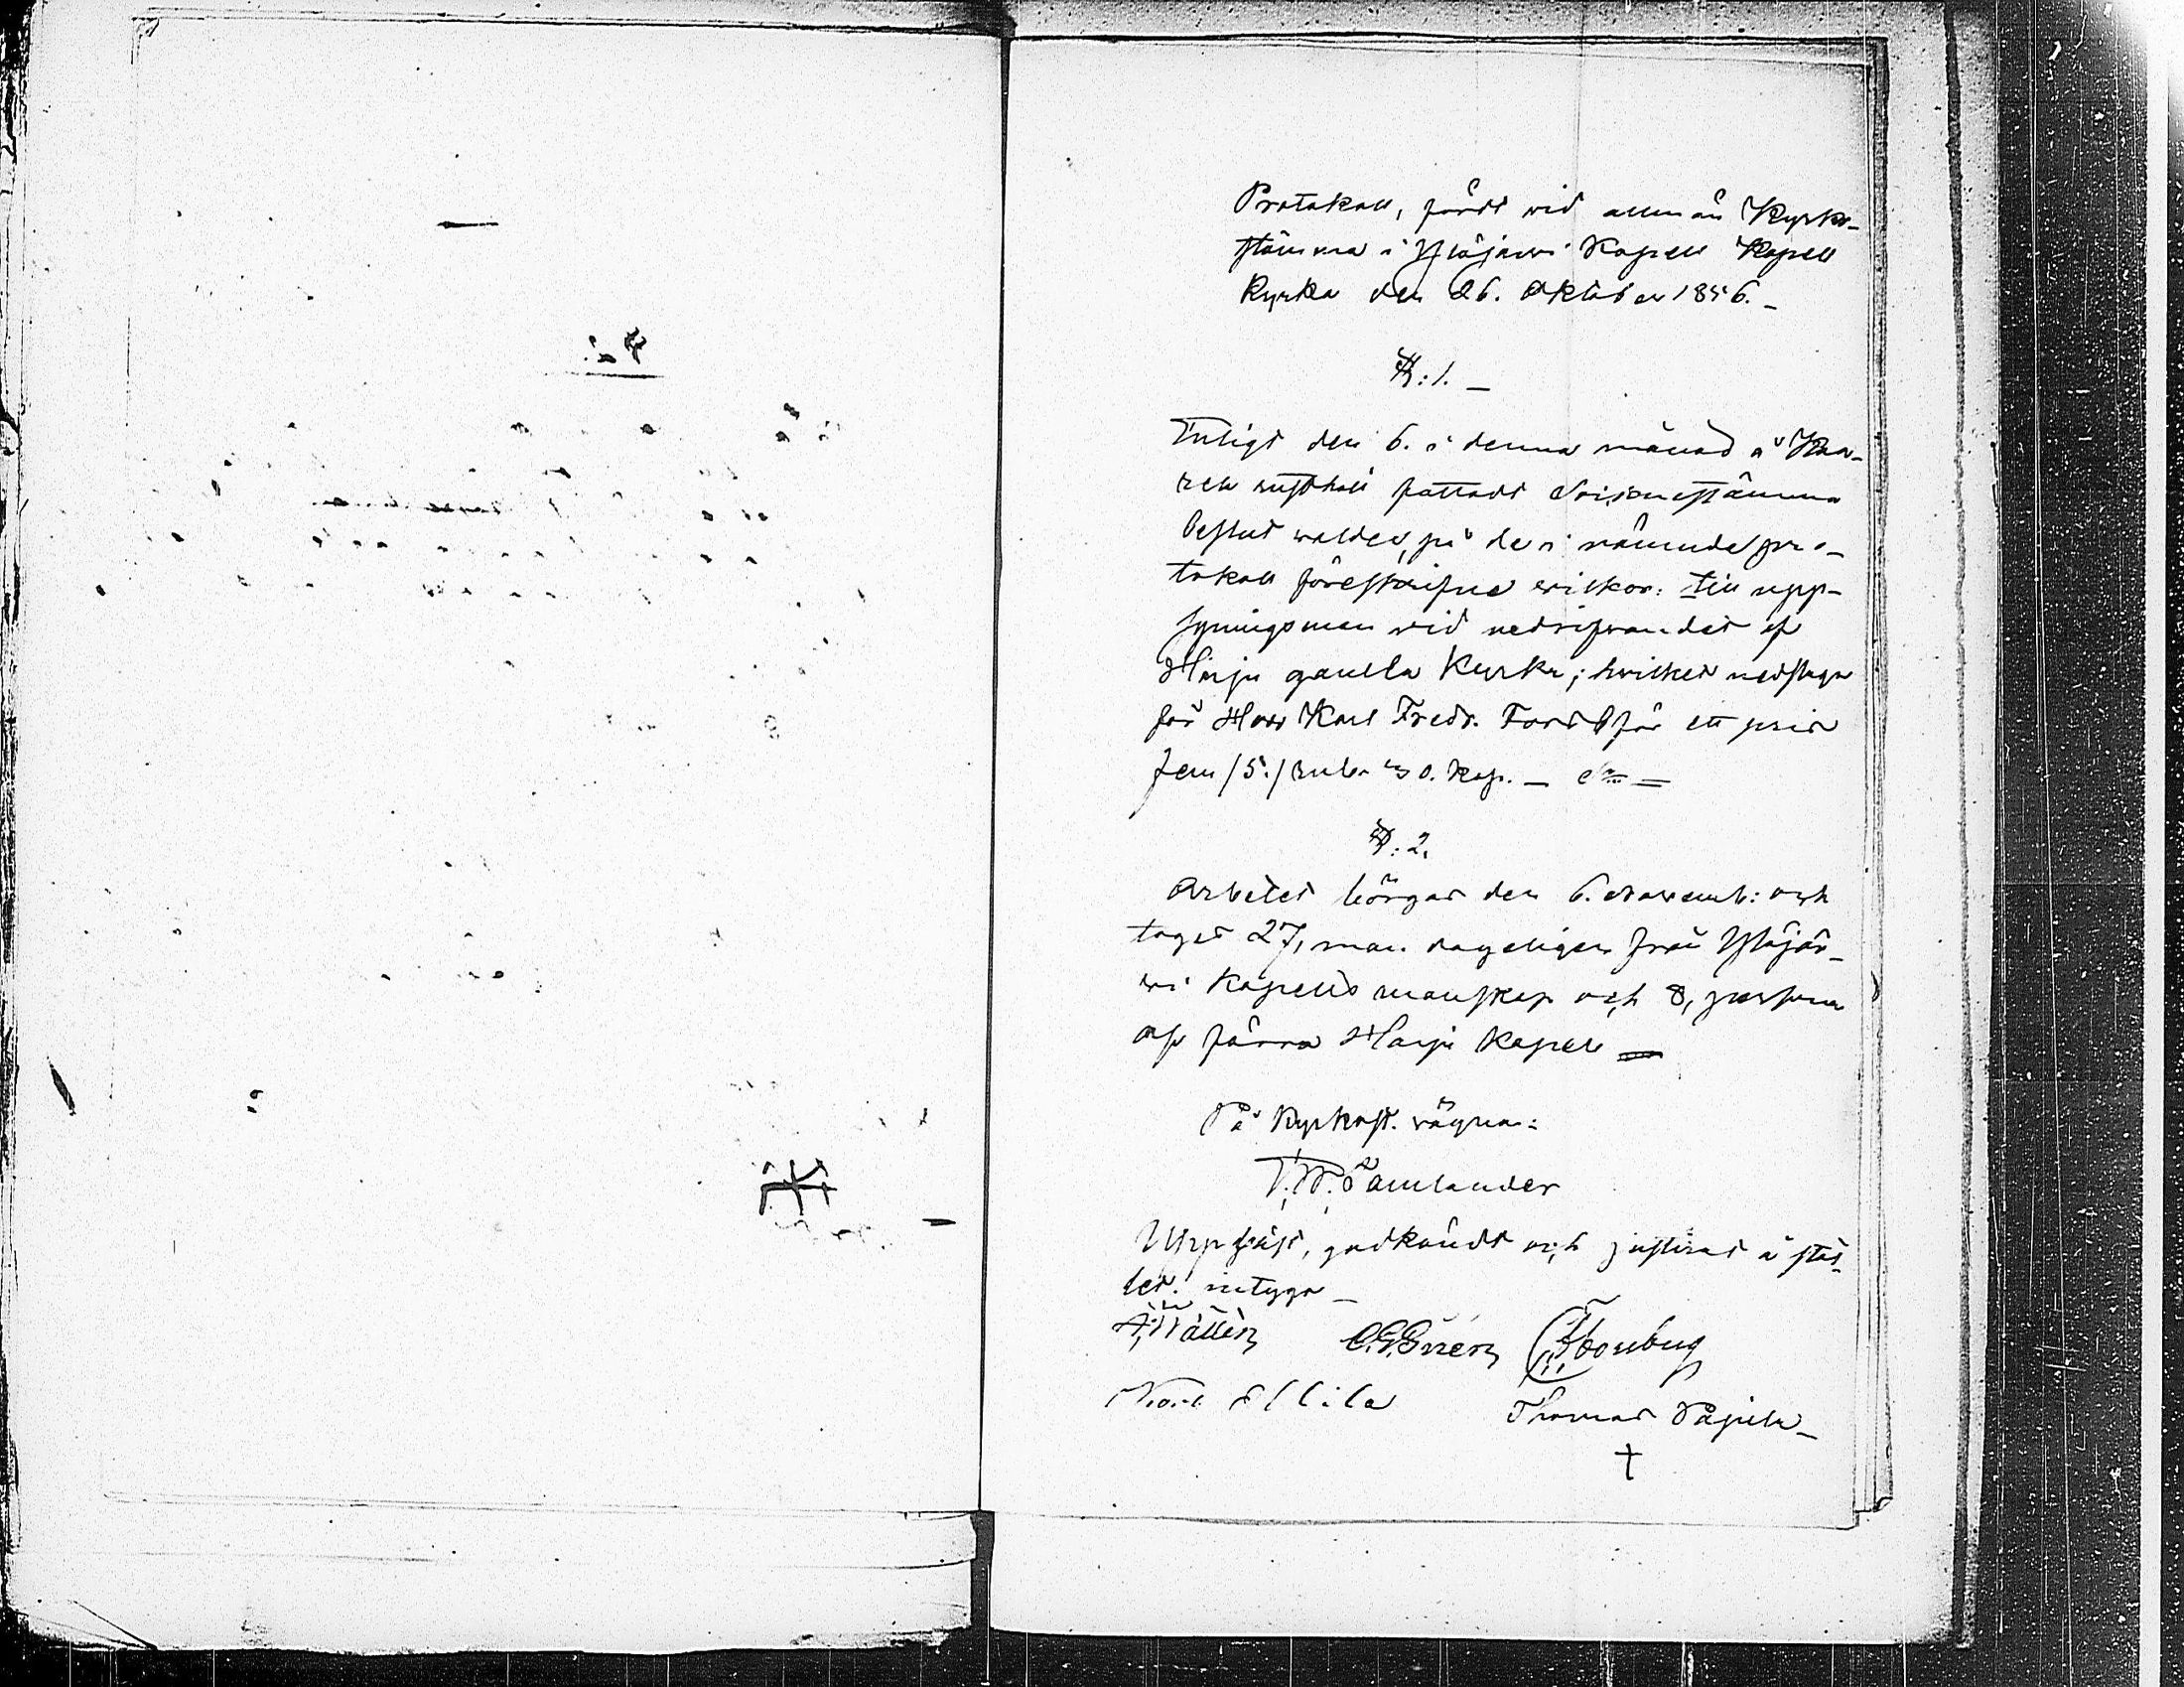 Protokoll, fördt wid allmän Kyrko-
stämma i Ylöjärwi Kapell Kapell
Kyrka den 26. Oktober 1856. -
§:1. -
Enligt den 6. i denna månad å Kaa-
rela rusthåll fattadt Sockenstämma
beslut waldes, på de i nämnde pro-
tokoll föreskrifne wilkor: till upp-
syningsman wid nedrifwandet af
Harju gamla Kyrka; hwilket nedtaga
får Herr Karl Fredr. för ett pris
fem /5./ Rubr 30. Kop. -
§:2.
Arbetet börjas den 6. Novemb: och
tages 27, man dageligen från Ylöjär-
wi Kapells manskap och 8, personer
af förra Harju Kapell
På Kyrkost. wägnar:
Pamlander
Uppläst, godkändt och justerat å stäl-
let. intyga -
A. Wallén C. G. Grén
Karl Ellilä Thomas Päjilä -
†